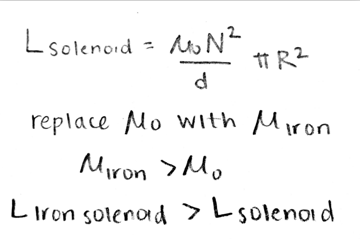 L solenoid = μ₀N²/d πR²
replace μ₀ with μ iron
μ iron > μ₀
L Iron solenoid > L solenoid